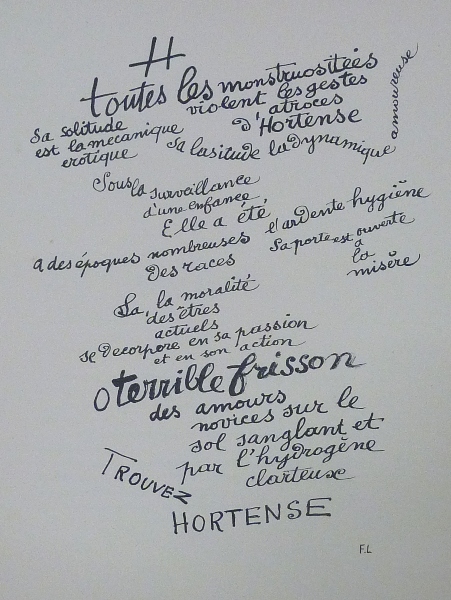 H
toutes les monstruositées
violent les gestes
d'atroces
d'Hortense
Sa solitude
est la mecanique
erotique
Sa lasitude la dynamique
amoureuse
Sous la surveillance
d'une enfance
Elle a été,
a des époques nombreuses
l'ardente hygiène
Des races
Sa porte est ouverte
a
la
misère
La, la moralité
des êtres
actuels
se decorpore en sa passion
et en son action
O terrible frisson
des amours
novices sur le
sol sanglant et
par l'hydrogène
clarteuse
TROUVEZ
HORTENSE
F.L